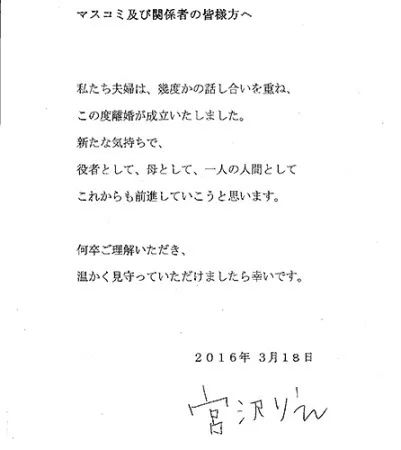 マスコミ及び関係者の皆様方へ
私たち夫婦は、幾度かの話し合いを重ね、
この度離婚が成立いたしました。
新たな気持ちで、
役者として、母として、一人の人間として
これからも前進していこうと思います。
何卒ご理解いただき、
温かく見守っていただけましたら幸いです。
2016年 3月18日
宮沢りえ